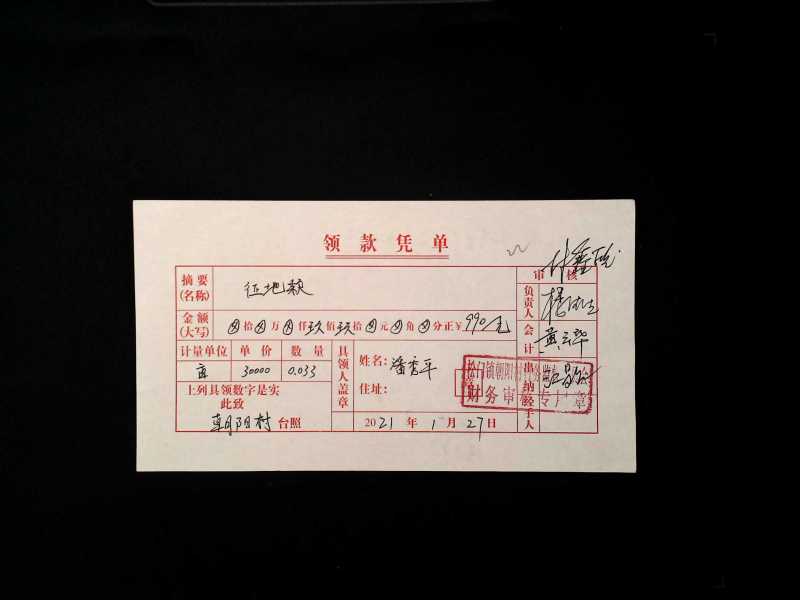 领款凭单
摘要(名称) 征地款
审核
负责人
金额(大写) ⊗拾⊗万⊗仟玖佰玖拾⊗元⊗角⊗分正¥990元
会计 黄云华
计量单位 单价 数量
亩 30000 0.033
具领人盖章
姓名:潘秀平
住址:
出纳
经手人
财务审 专 章
上列具领数字是实
此致
朝阳村 台照
2021年1月27日